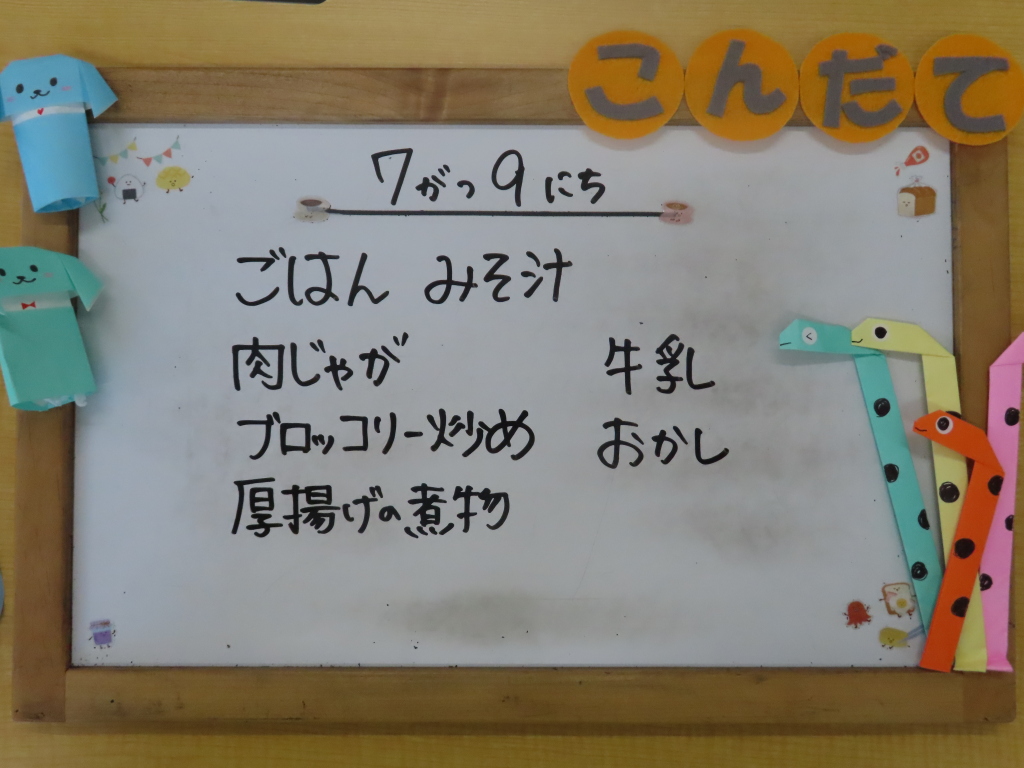 こんだて
7がつ9にち
ごはん みそ汁
肉じゃが 牛乳
ブロッコリー炒め おかし
厚揚げの煮物